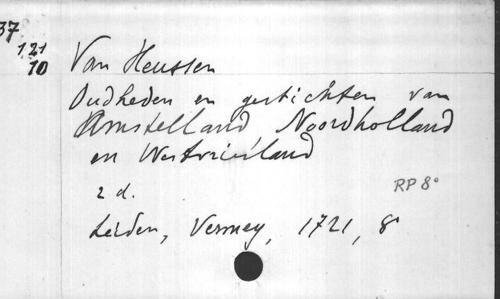 37
121
10
Van Heussen
Oudheden en gestichten van
Amstelland, Noordholland
en Westvriesland
2 d.
RP 8°
Leiden, Vermey, 1721, 8°